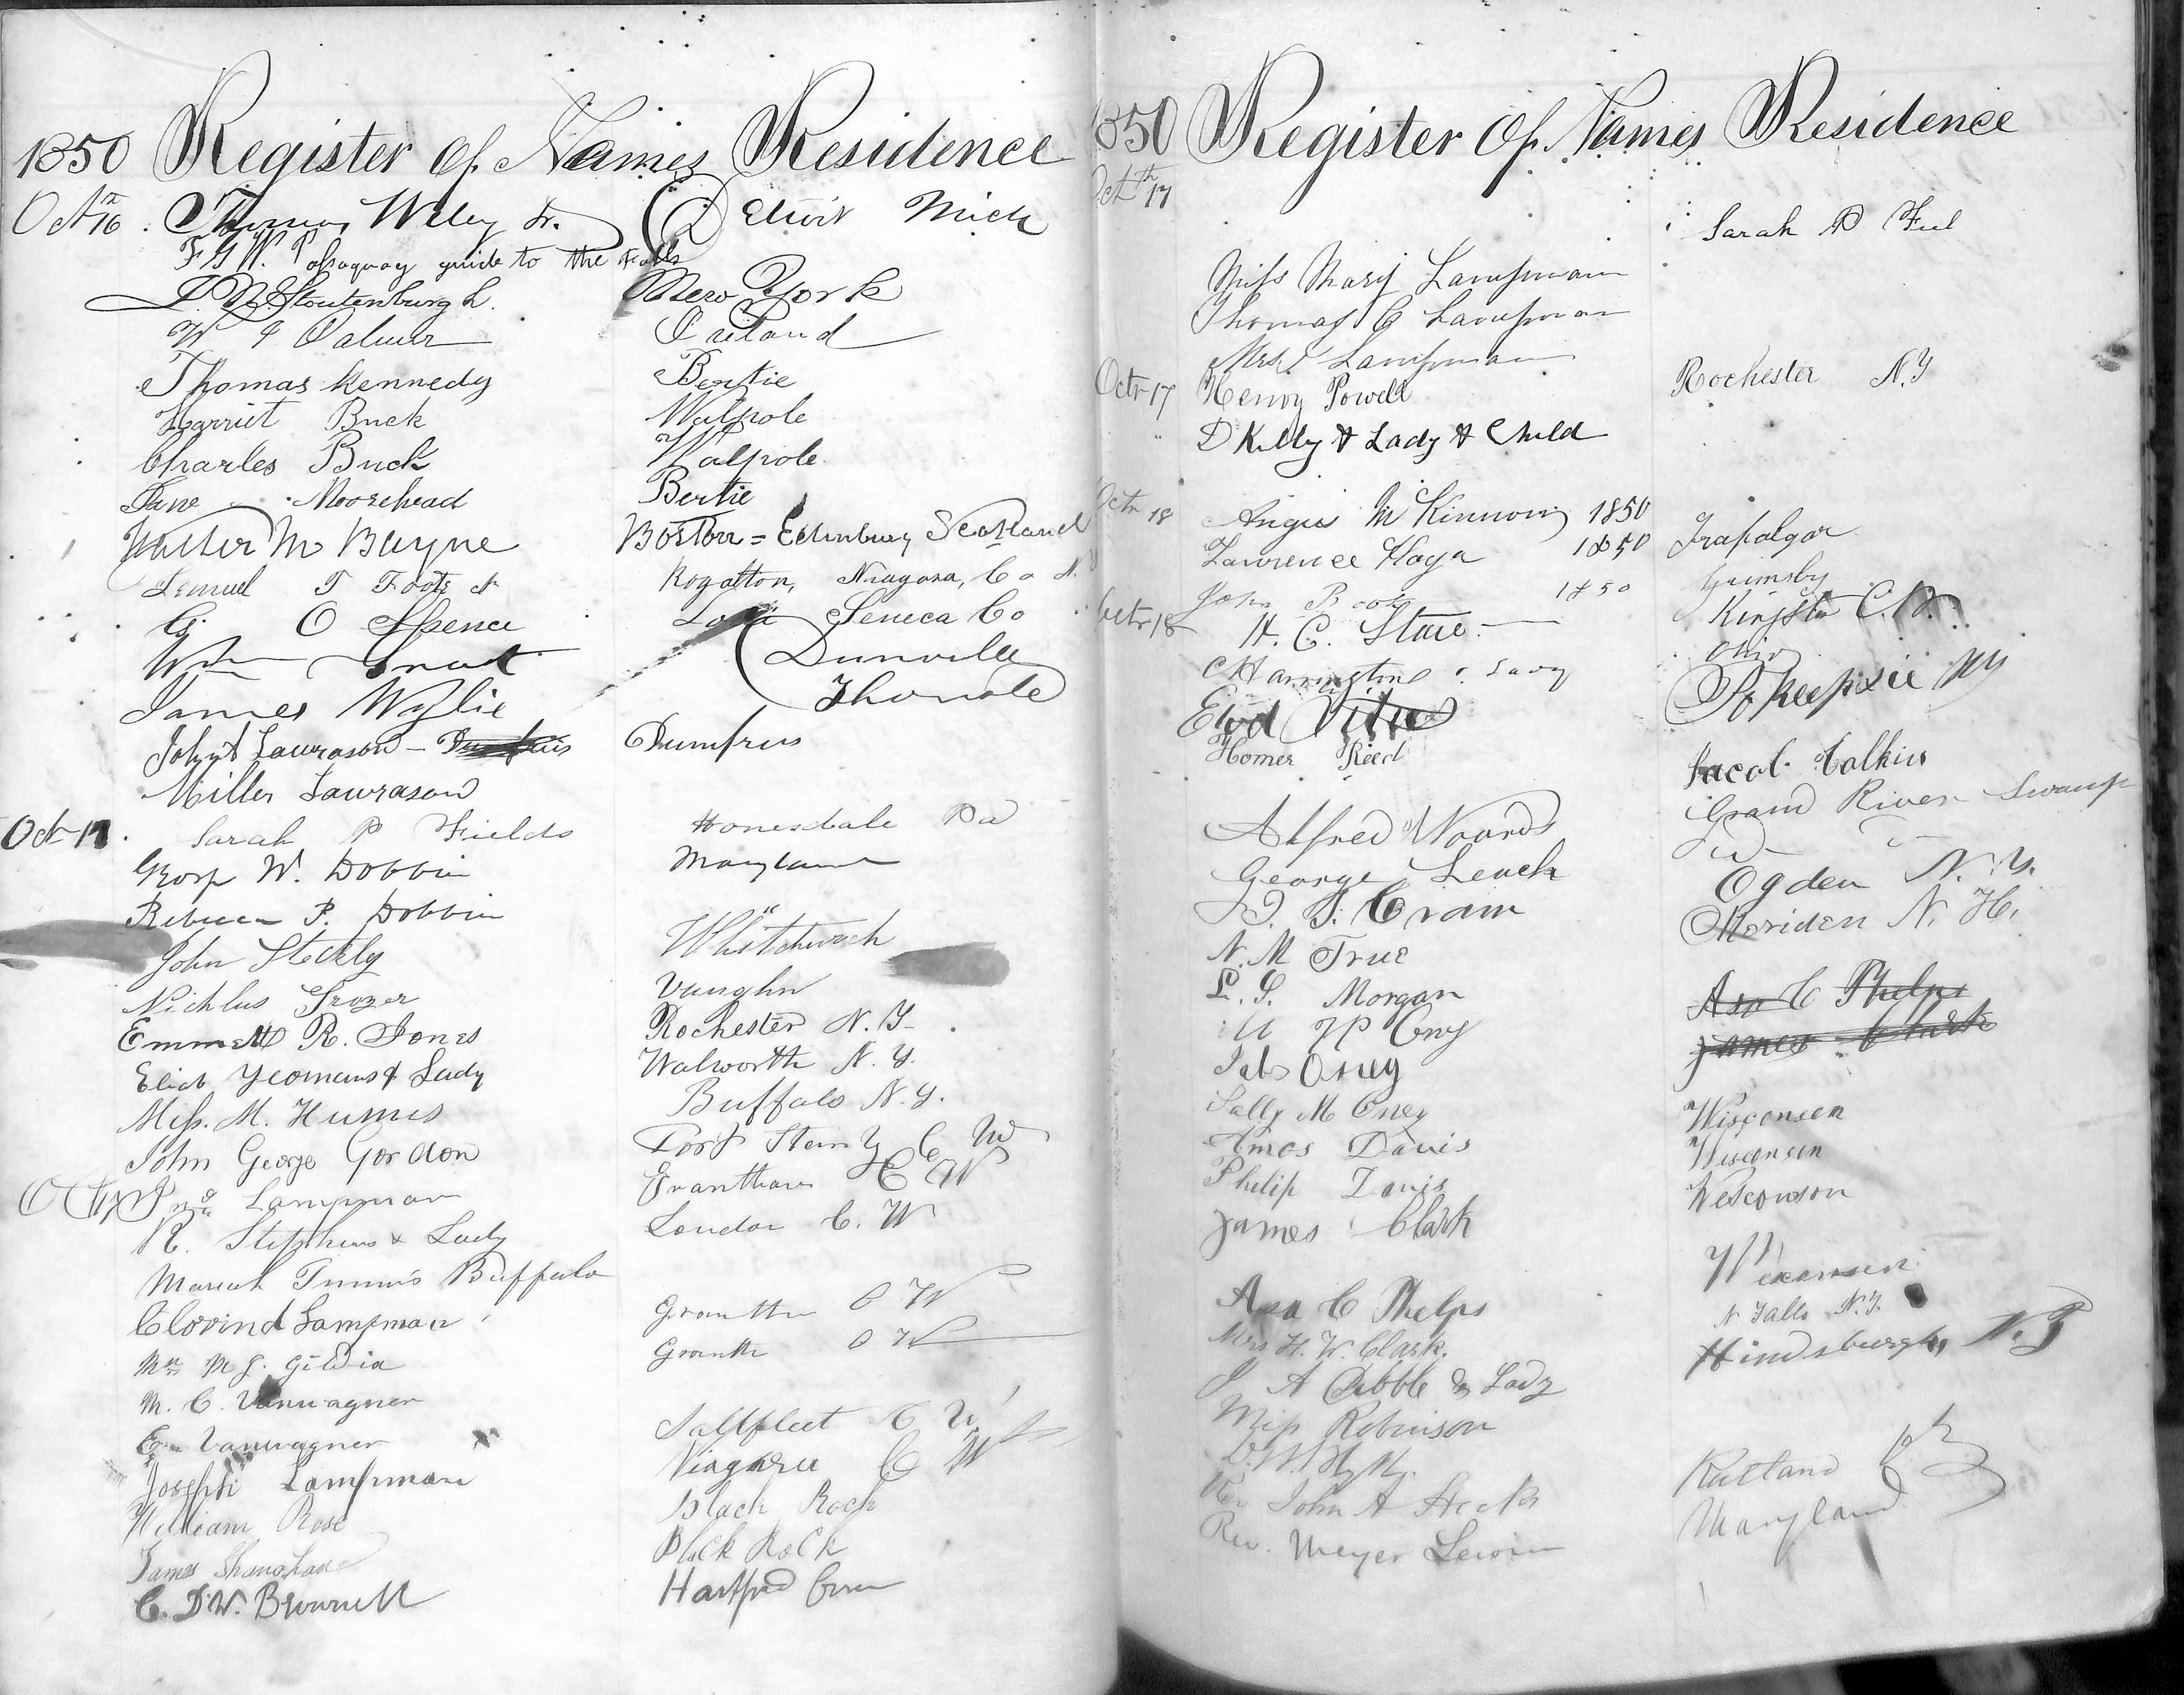 1850 Register Of Names Residence
Oct 16 Thomas Wiley Jr. Detroit Mich
F G W. guide to the Falls
Stoutenburgh. New York
W Palmer Ireland
Thomas Kennedy Bertie
Harriet Buck Walpole
Charles Buck Walpole
Jane Moorehead Bertie
Walter M Bayne Boston = Edinburg Scotland
Lemuel T Foote Royalton, Niagara, Co N.Y
G. O Spence Lodi Seneca Co
Wm Grant Dunville
James Wylie Thorold
John Lawrason - Dumfries Dumfries
Miller Lawrason
Oct 17 Sarah P Fields Honesdale Pa
George W. Dobbin Maryland
Rebecca P. Dobbin "
John Steckly Whitchurch
Nichlus Vaughn
Emmett R. Jones Rochester N.Y.
Eliab Yeomans & Lady Walworth N.Y.
Miss. M. Humes Buffalo N.Y.
John George Gordon Port C W
Lampman Grantham C W
R. Stephens & Lady London C. W
Mariah Buffalo
Clorind Lampman Grantm C W
Mrs M J. Grantm C W
M. C. Vanwagner
E Vanwagner Saltfleet C W
Joseph Lampman Niagara C W
William Rose Black Rock
James Shanahan Black Rock
C. D.W. Brownell Hartford Conn
1850 Register Of Names Residence
Oct 17th
Sarah P Fiel
Miss Mary Lampman
Thomas C Lampman
Mrs Lampman
Octr 17 Henry Powell Rochester N.Y
" D Kelly & Lady & Child
Octr 18 Angus McKinnon 1850 Trafalgar
Lawrence 1850 Grimsby
John 1850
Octr 18 H. C. Kingston C.W.
C Harrington & Lady Ohio
Pokeepsie NY
Homer Reed
Jacob Calkin
Alfred Woords Grand River Swamp
George Leach
D. J. Cram Ogden N.Y.
N. M True Meriden N. H.
L. S. Morgan
Asa C Phelps
James Clark
Sally M Oney Wisconsen
Amos Davis Wisconsin
Philip Davis Wesconson
James Clark
Wixonsen
Asa C Phelps
Mrs H. W. Clark. N Falls N.Y.
A Dibble & Lady Hindsburgh, N.Y
Miss Robinson
Rev John A Rutland
Rev. Meyer Lewin Maryland